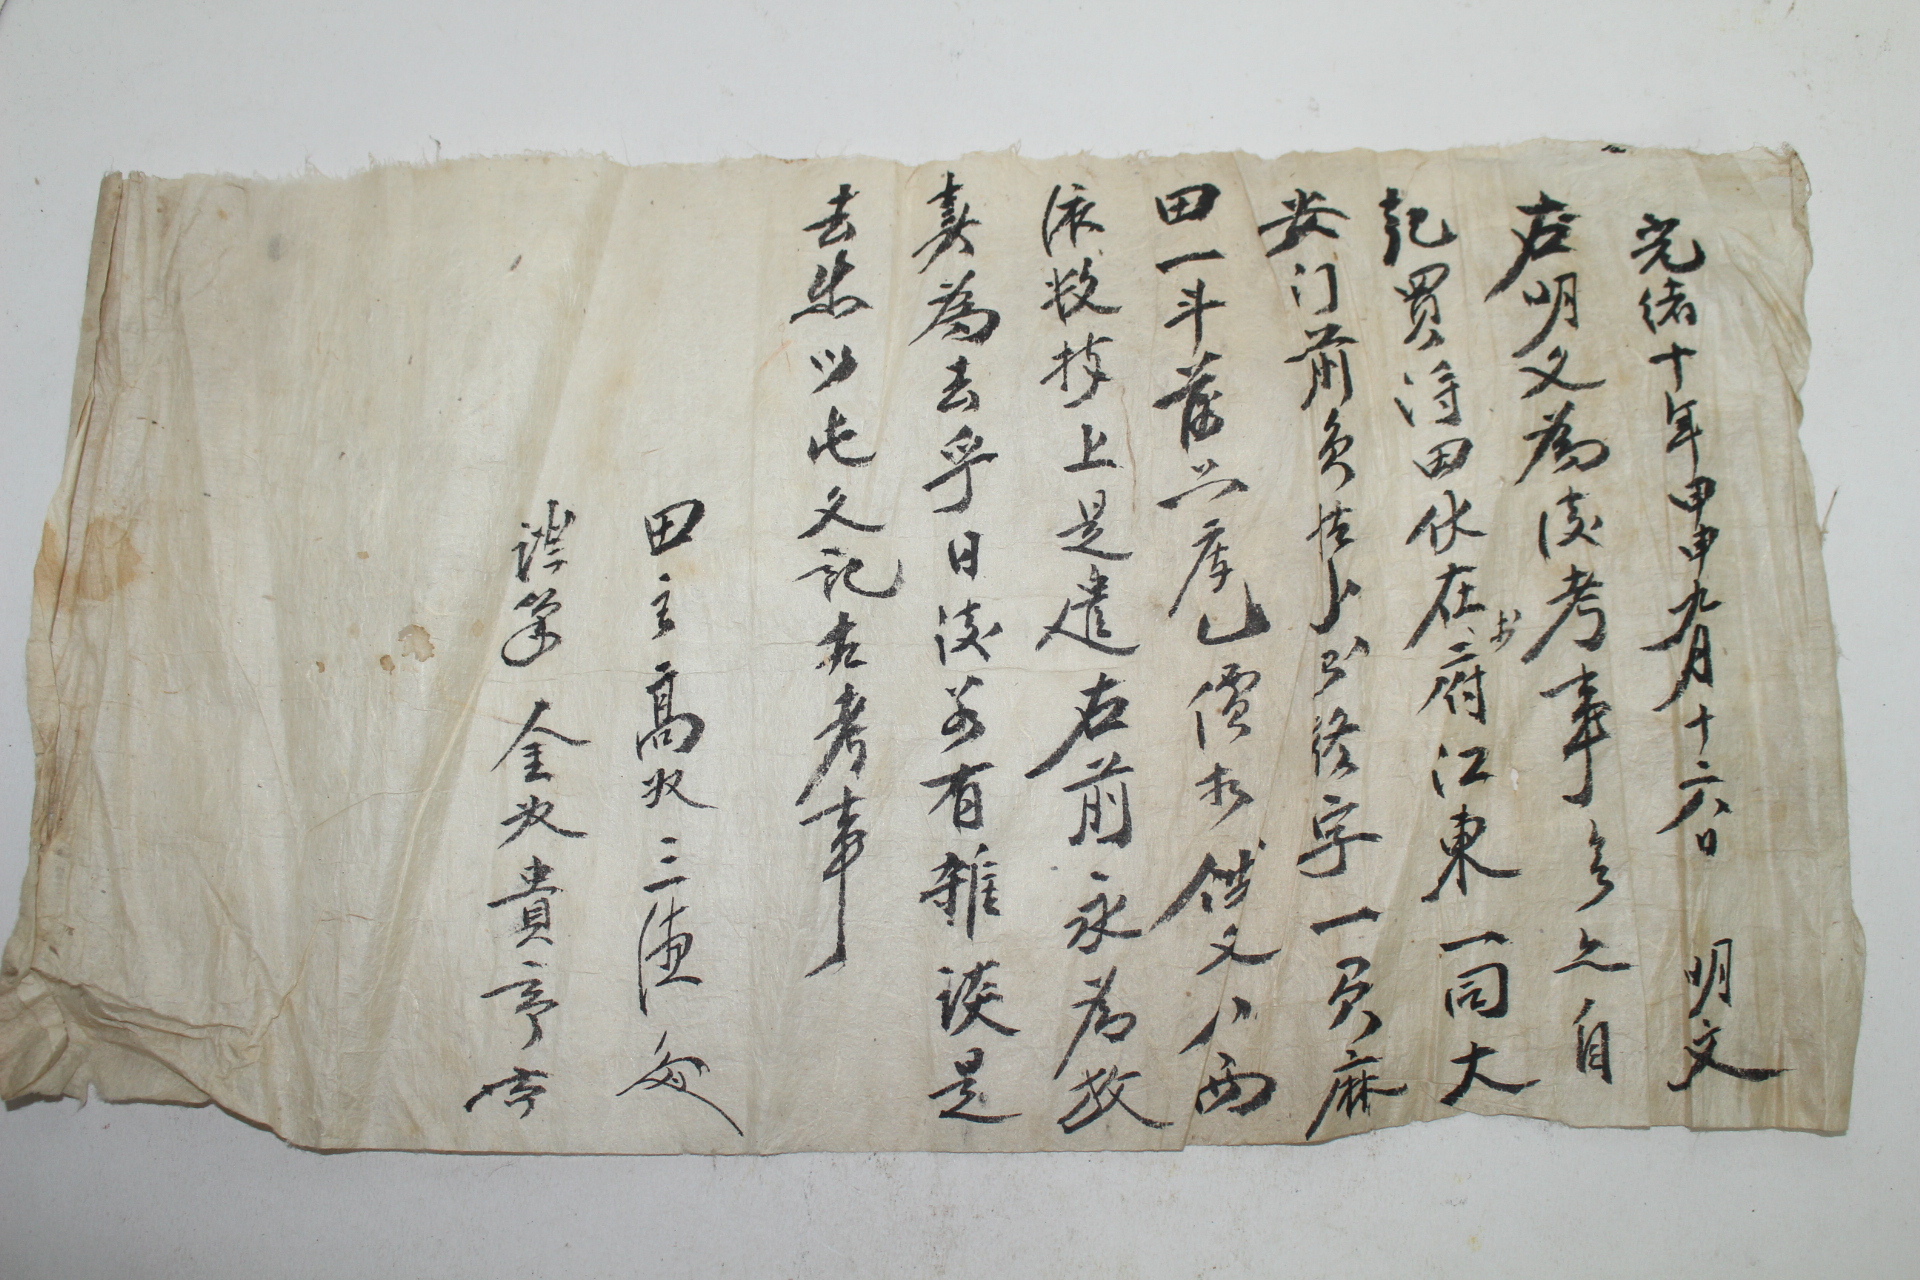 光緒十年甲申九月十六日 明文
右明文為後考事矣之自
起買得田伏在府江東一同大
安门前員 字一負麻
田一斗 庫㐣價折錢文八両
依數捧上是遣右前永為放
賣為去乎日後若有雜談是
去等以此文記相考事
田主高奴三德
證筆金奴貴亭